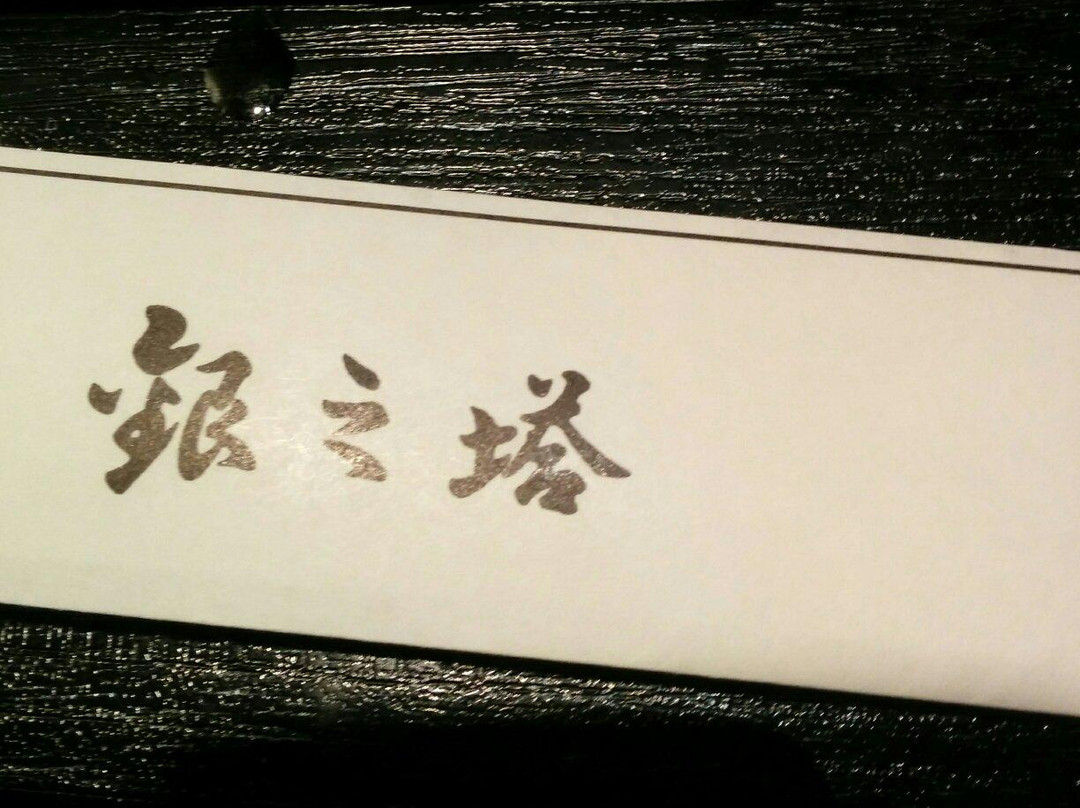 銀之塔